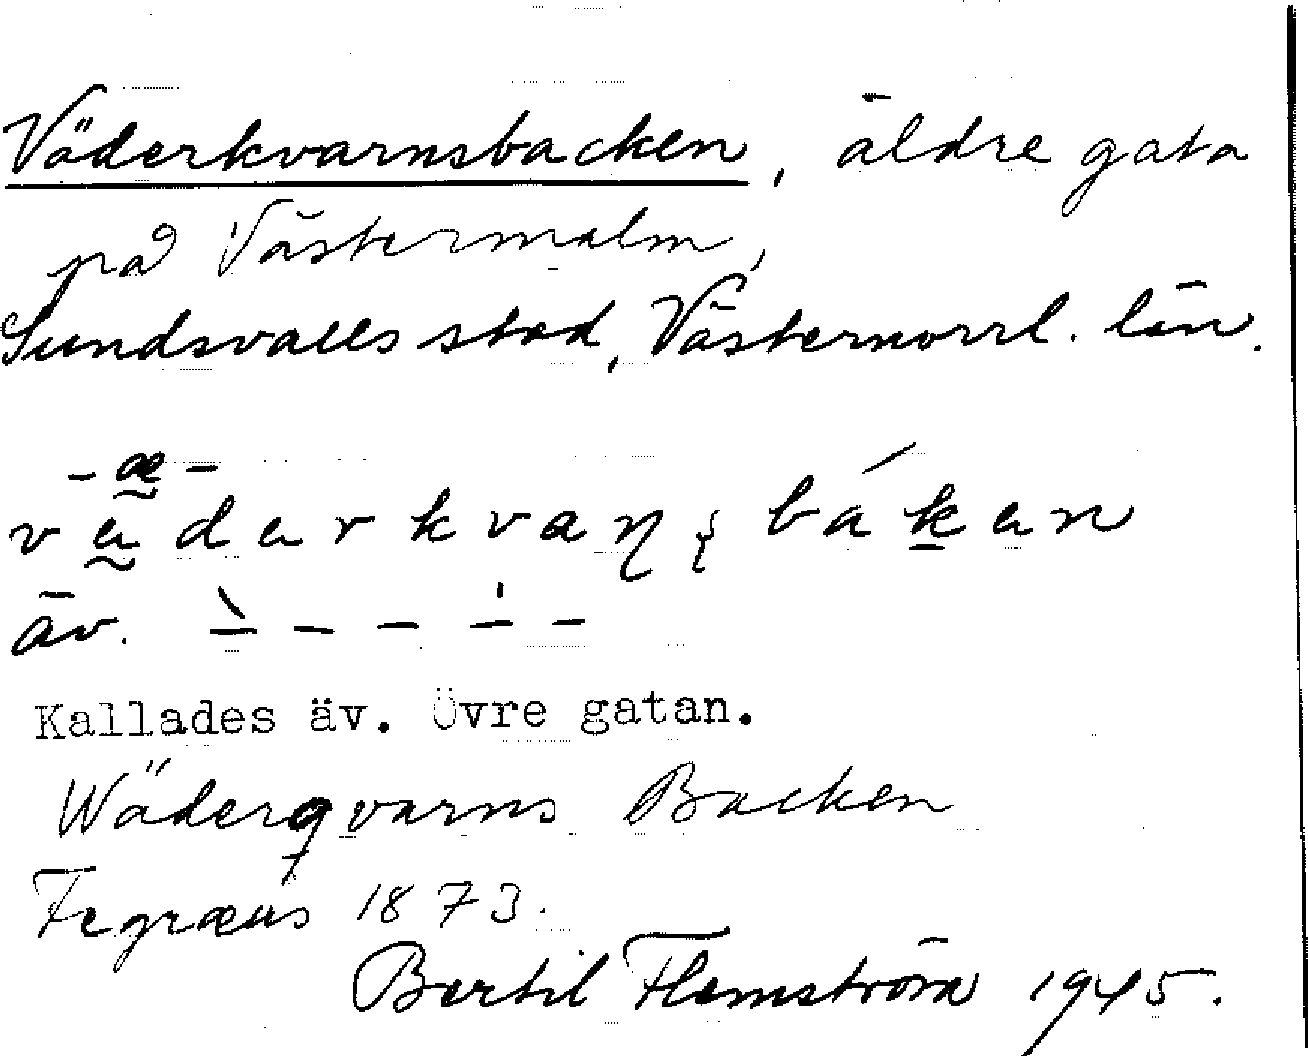 Väderkvarnsbacken, äldre gata
på Västermalm,
Sundsvalls stad, Västernorrl. län.
- æ -
v e d e r k v a ɳ ʂ b á k e n
äv. – – – – –
Kallades äv. Övre gatan.
Wäderqvarns Backen
Fegræus 1873.
Bertil Flemström 1945.